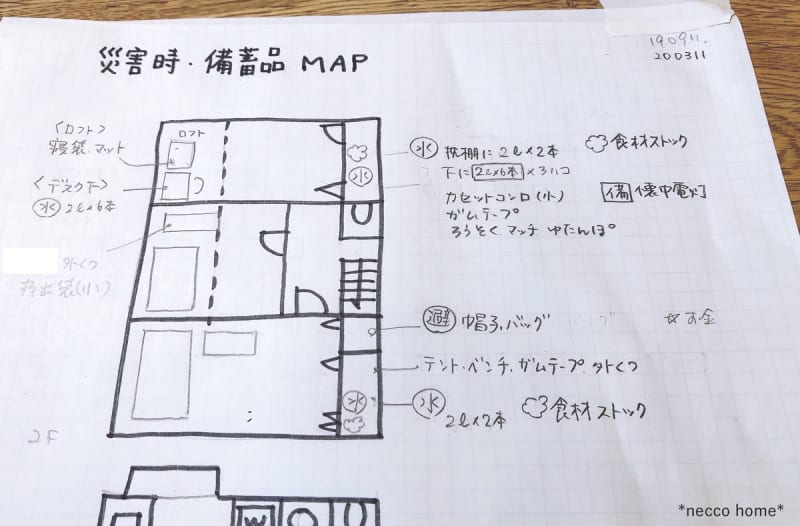 災害時・備蓄品 MAP
190911.
200311
〈ロフト〉
寝袋、マット
ロフト
〈デスク下〉
水 2ℓ×6本
外くつ
持出袋(小)
水
水 枕棚に 2ℓ×2本
食材ストック
下に 2ℓ×6本 ×3ハコ
カセットコンロ(小)
備 懐中電灯
ガムテープ
ろうそく マッチ ゆたんぽ
避 帽子、バッグ
☆お金
テント・ベンチ、ガムテープ、外くつ
水
水 2ℓ×2本
食材ストック
2F
W
*necco home*